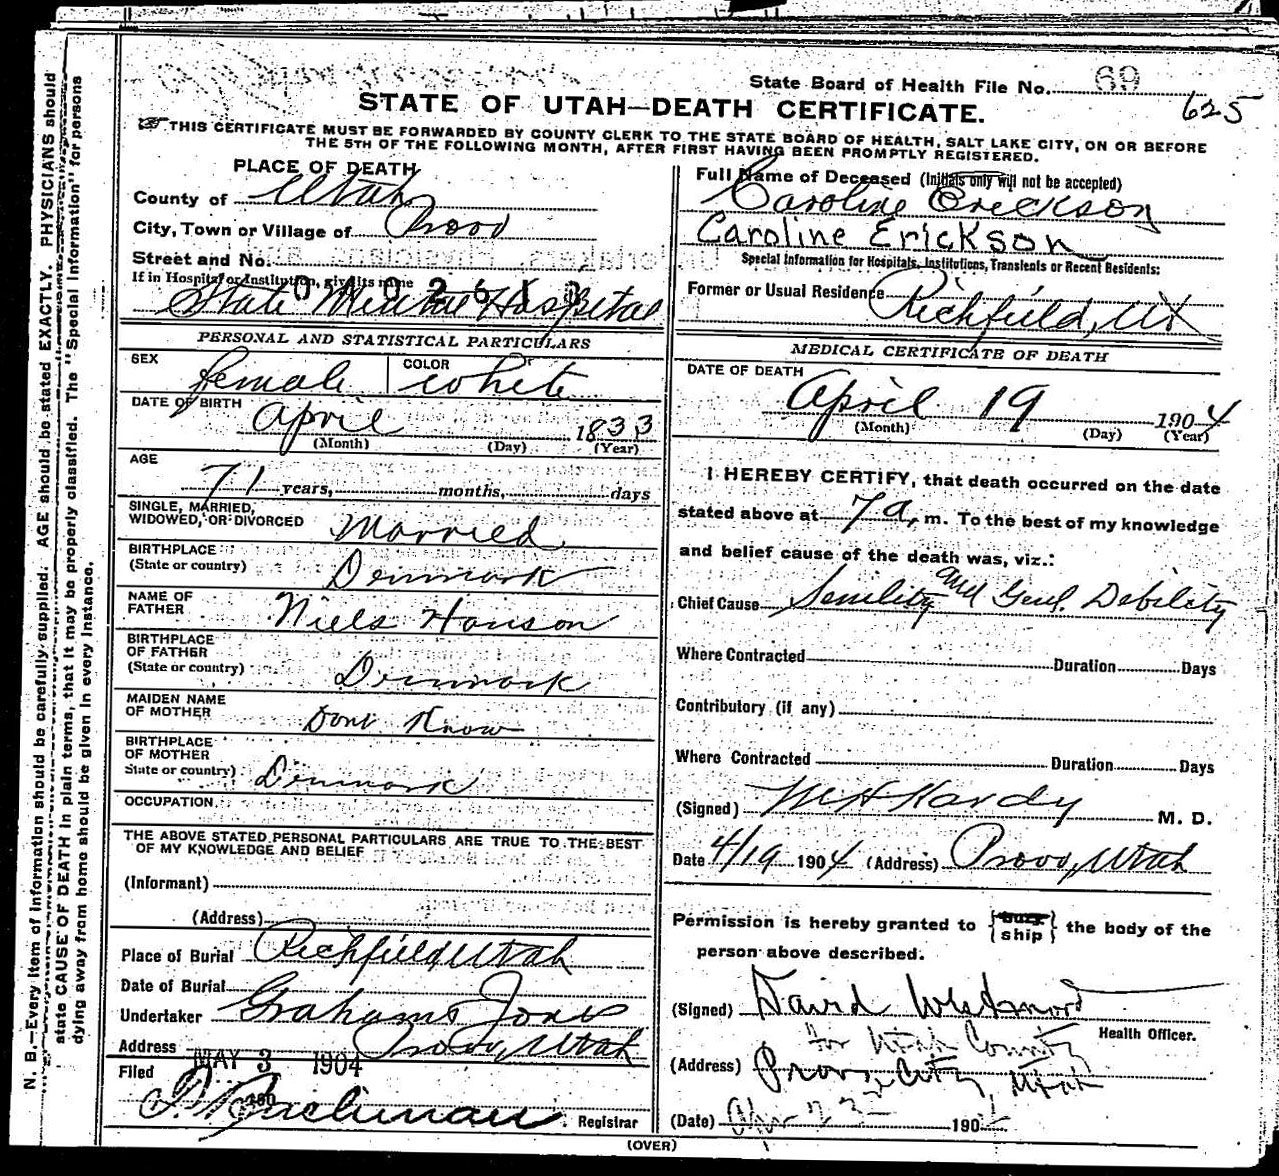 State Board of Health File No. 69
625
STATE OF UTAH—DEATH CERTIFICATE.
THIS CERTIFICATE MUST BE FORWARDED BY COUNTY CLERK TO THE STATE BOARD OF HEALTH, SALT LAKE CITY, ON OR BEFORE
THE 5TH OF THE FOLLOWING MONTH, AFTER FIRST HAVING BEEN PROMPTLY REGISTERED.
N. B.—Every item of information should be carefully supplied. AGE should be stated EXACTLY. PHYSICIANS should
state CAUSE OF DEATH in plain terms, that it may be properly classified. The "Special Information" for persons
dying away from home should be given in every instance.
PLACE OF DEATH
County of Utah
City, Town or Village of Provo
Street and No.
If in Hospital or Institution, give its name
State Mental Hospital
PERSONAL AND STATISTICAL PARTICULARS
SEX female COLOR white
DATE OF BIRTH April 1833
(Month) (Day) (Year)
AGE
71 years, months, days
SINGLE, MARRIED,
WIDOWED, OR DIVORCED Married
BIRTHPLACE
(State or country) Denmark
NAME OF
FATHER Niels Hanson
BIRTHPLACE
OF FATHER
(State or country) Denmark
MAIDEN NAME
OF MOTHER Dont Know
BIRTHPLACE
OF MOTHER
State or country) Denmark
OCCUPATION
THE ABOVE STATED PERSONAL PARTICULARS ARE TRUE TO THE BEST
OF MY KNOWLEDGE AND BELIEF
(Informant)
(Address)
Place of Burial Richfield Utah
Date of Burial
Undertaker Grahams Jones
Address Provo, Utah
Filed MAY 3 1904
Registrar
Full Name of Deceased (Initials only will not be accepted)
Caroline Erickson
Caroline Erickson
Special Information for Hospitals, Institutions, Transients or Recent Residents:
Former or Usual Residence Richfield, Ut
MEDICAL CERTIFICATE OF DEATH
DATE OF DEATH
April 19 1904
(Month) (Day) (Year)
I HEREBY CERTIFY, that death occurred on the date
stated above at 7 a. m. To the best of my knowledge
and belief cause of the death was, viz.:
Chief Cause Senility and Genl. Debility
Where Contracted Duration Days
Contributory (if any)
Where Contracted Duration Days
(Signed) M H Hardy M. D.
Date 4/19 1904 (Address) Provo, Utah
Permission is hereby granted to {bury ship} the body of the
person above described.
(Signed) David
Health Officer.
for Utah County
(Address) Provo City, Utah
(Date) 190
(OVER)